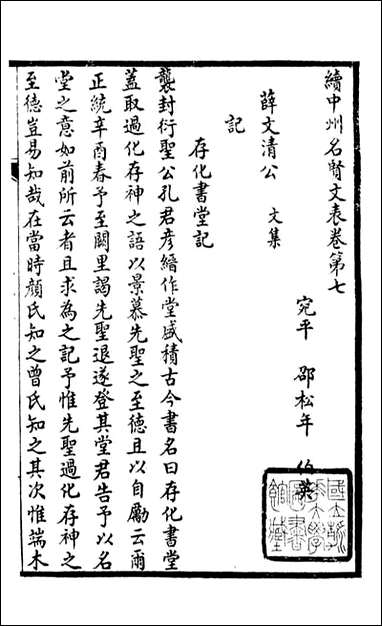 續中州名賢文表卷第七
宛平 邵松年 伯英
薛文清公 文集
記
存化書堂記
襲封衍聖公孔君彥縉作堂盛積古今書名曰存化書堂
蓋取過化存神之語以景慕先聖之至德且以自勵云爾
正統辛酉春予至闕里謁先聖退遂登其堂君告予以名
堂之意如前所云者且求為之記予惟先聖過化存神之
至德豈易知哉在當時顏氏知之曾氏知之其次惟端木